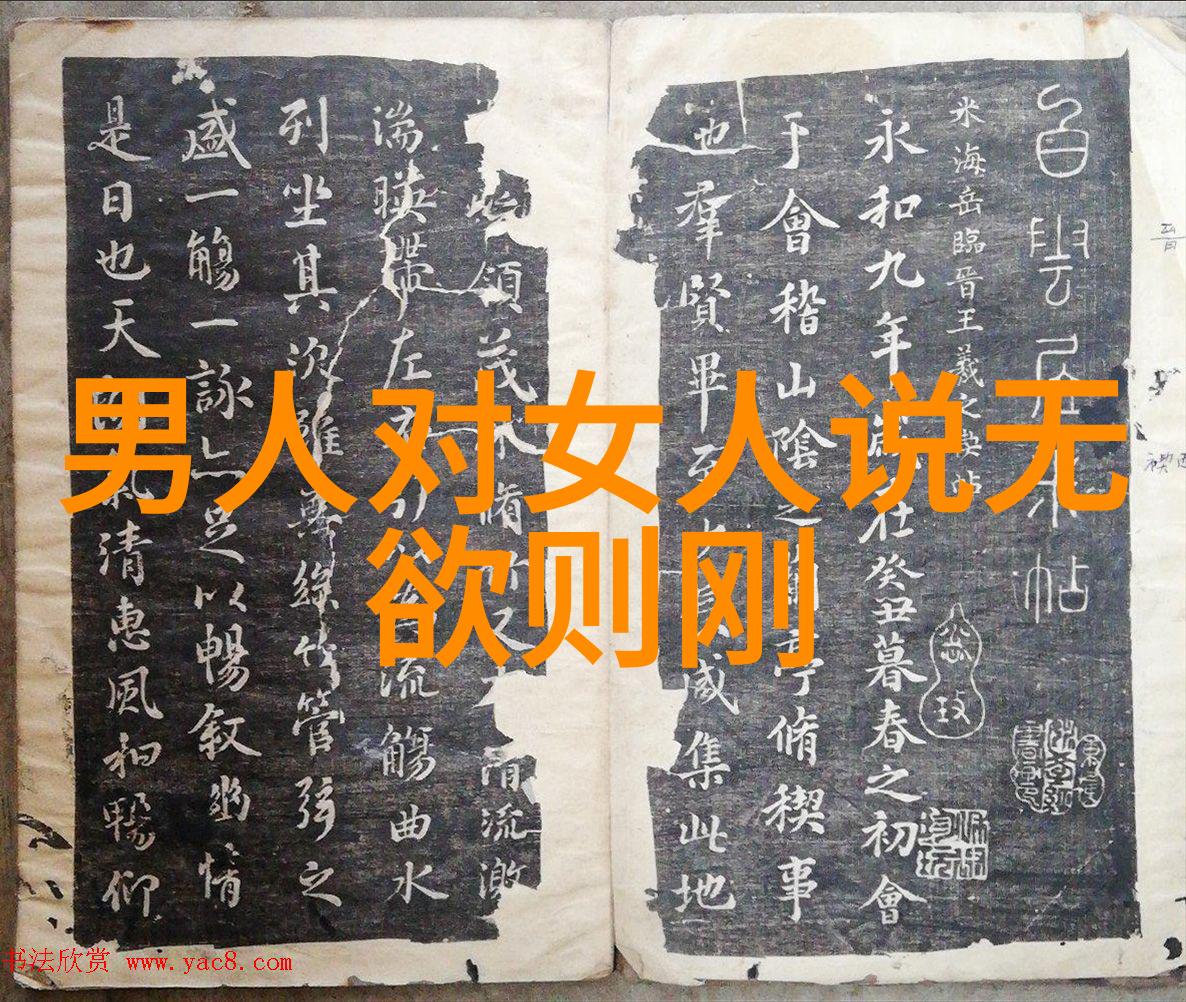 男人对女人说无
欲则刚
白雲居米帖
米海岳臨晉王羲之禊帖
永和九年歲在癸丑暮春之初會
于會稽山陰之蘭亭脩稧事
也羣賢畢至少長咸集此地
領茂林脩竹又 清流激
湍暎帶左右引以為流觴曲水
列坐其次雖無絲竹管弦之
盛一觴一詠亦足以暢叙幽情
是日也天朗氣清惠風和暢仰
书法欣赏 www.yac8.com